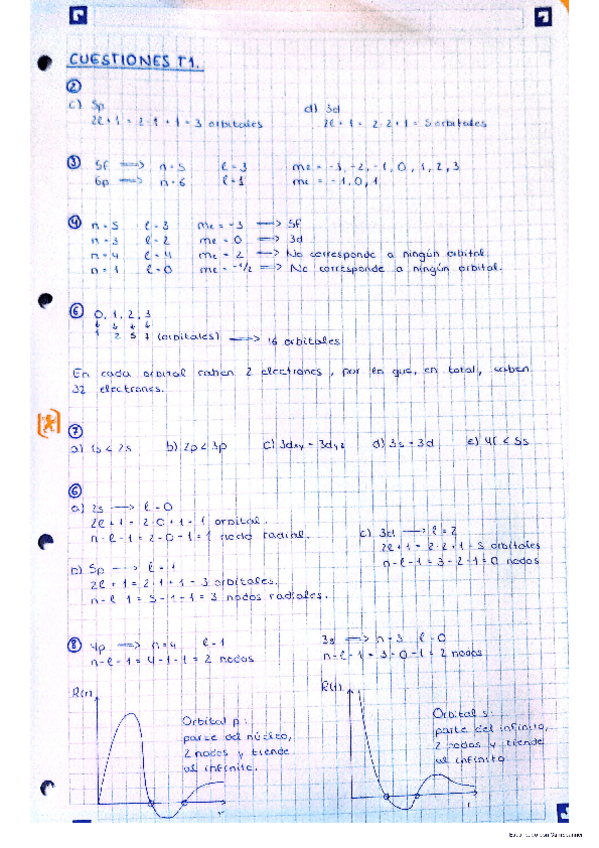 CUESTIONES T1.
②
c) 5p
2l+1 = 2·1+1 = 3 orbitales
d) 3d
2l+1 = 2·2+1 = 5 orbitales
③ 5f ⟹ n=5 l=3 ml = -3, -2, -1, 0, 1, 2, 3
6p ⟹ n=6 l=1 ml = -1, 0, 1
④ n=5 l=3 ml = -3 ⟶ 5f
n=3 l=2 ml = 0 ⟹ 3d
n=4 l=4 ml = 2 ⟹ No corresponde a ningún orbital.
n=1 l=0 ml = -1/2 ⟹ No corresponde a ningún orbital.
⑥ 0, 1, 2, 3
↓ ↓ ↓ ↓
1 3 5 7 (orbitales) ⟶ 16 orbitales
En cada orbital caben 2 electrones, por lo que, en total, caben
32 electrones.
⑦
a) 1s < 2s b) 2p < 3p c) 3dxy = 3dyz d) 3s = 3d e) 4f < 5s
⑥
a) 2s ⟶ l=0
2l+1 = 2·0+1 = 1 orbital.
n-l-1 = 2-0-1 = 1 nodo radial.
b) 5p ⟶ l=1
2l+1 = 2·1+1 = 3 orbitales.
n-l-1 = 5-1-1 = 3 nodos radiales.
c) 3d ⟶ l=2
2l+1 = 2·2+1 = 5 orbitales
n-l-1 = 3-2-1 = 0 nodos
⑧ 4p ⟶ n=4 l=1
n-l-1 = 4-1-1 = 2 nodos
3s ⟶ n=3 l=0
n-l-1 = 3-0-1 = 2 nodos
R(r)
Orbital p:
parte del núcleo,
2 nodos y tiende
al infinito.
r
R(r)
Orbital s:
parte del infinito,
2 nodos y tiende
al infinito
r